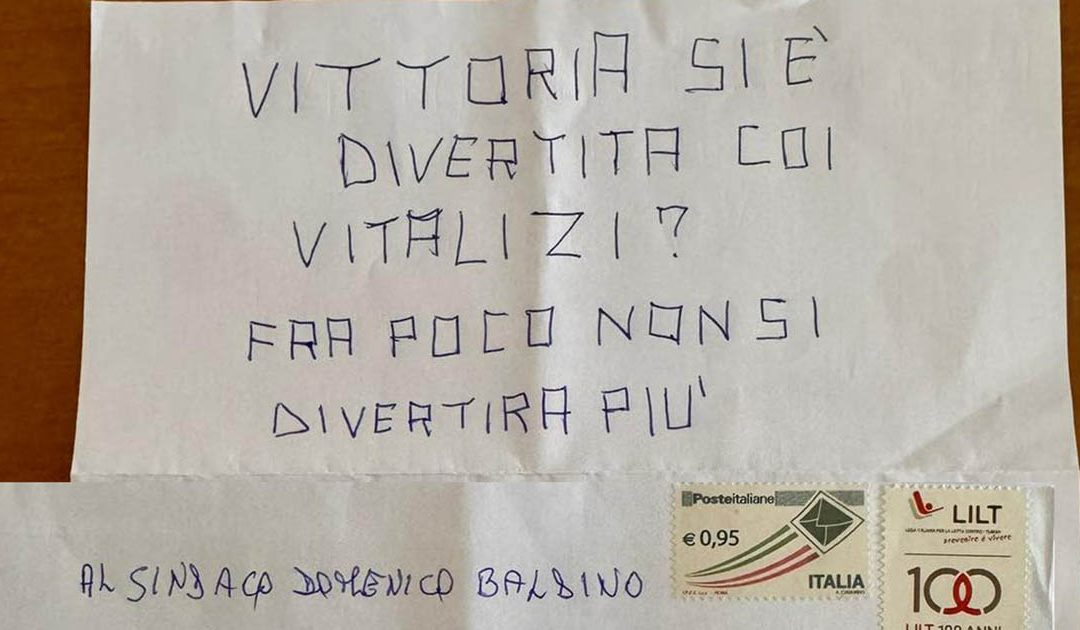 VITTORIA SI È
DIVERTITA COI
VITALIZI?
FRA POCO NON SI
DIVERTIRA PIU'
Posteitaliane
€ 0,95
ITALIA
LILT
LEGA ITALIANA PER LA LOTTA CONTRO I TUMORI
prevenire è vivere
100
LILT 100 ANNI
AL SINDACO DOMENICO BALDINO